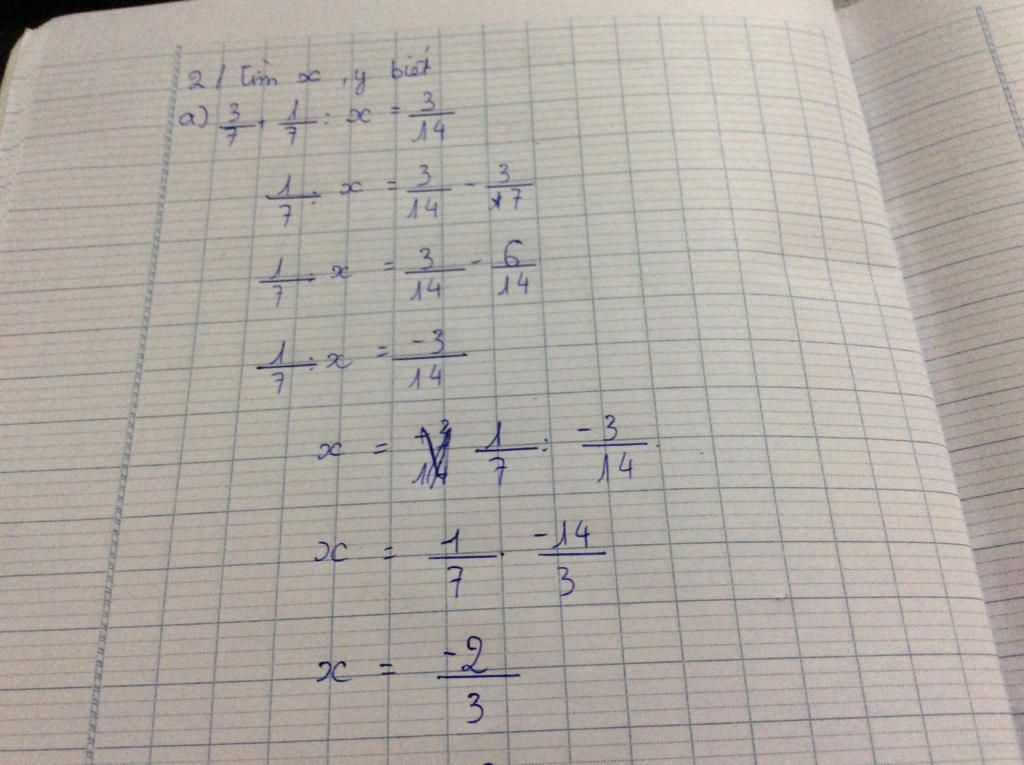 2/ Tìm x, y biết
a) 3/7 + 1/7 : x = 3/14
1/7 : x = 3/14 - 3/7
1/7 : x = 3/14 - 6/14
1/7 : x = -3/14
x = 1/7 : -3/14
x = 1/7 . -14/3
x = -2/3